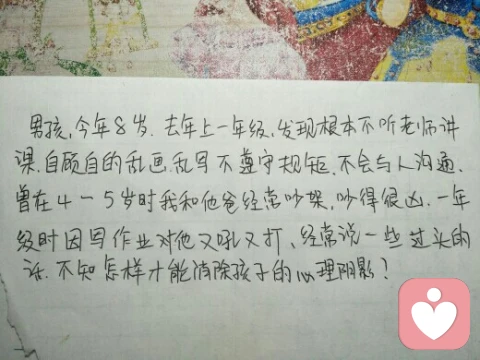 男孩,今年8岁.去年上一年级,发现根本不听老师讲
课.自顾自的乱画.乱写不遵守规矩.不会与人沟通、
曾在4-5岁时我和他爸经常吵架,吵得很凶.一年
级时因写作业对他又吼又打、经常说一些过头的
话.不知怎样才能消除孩子的心理阴影?